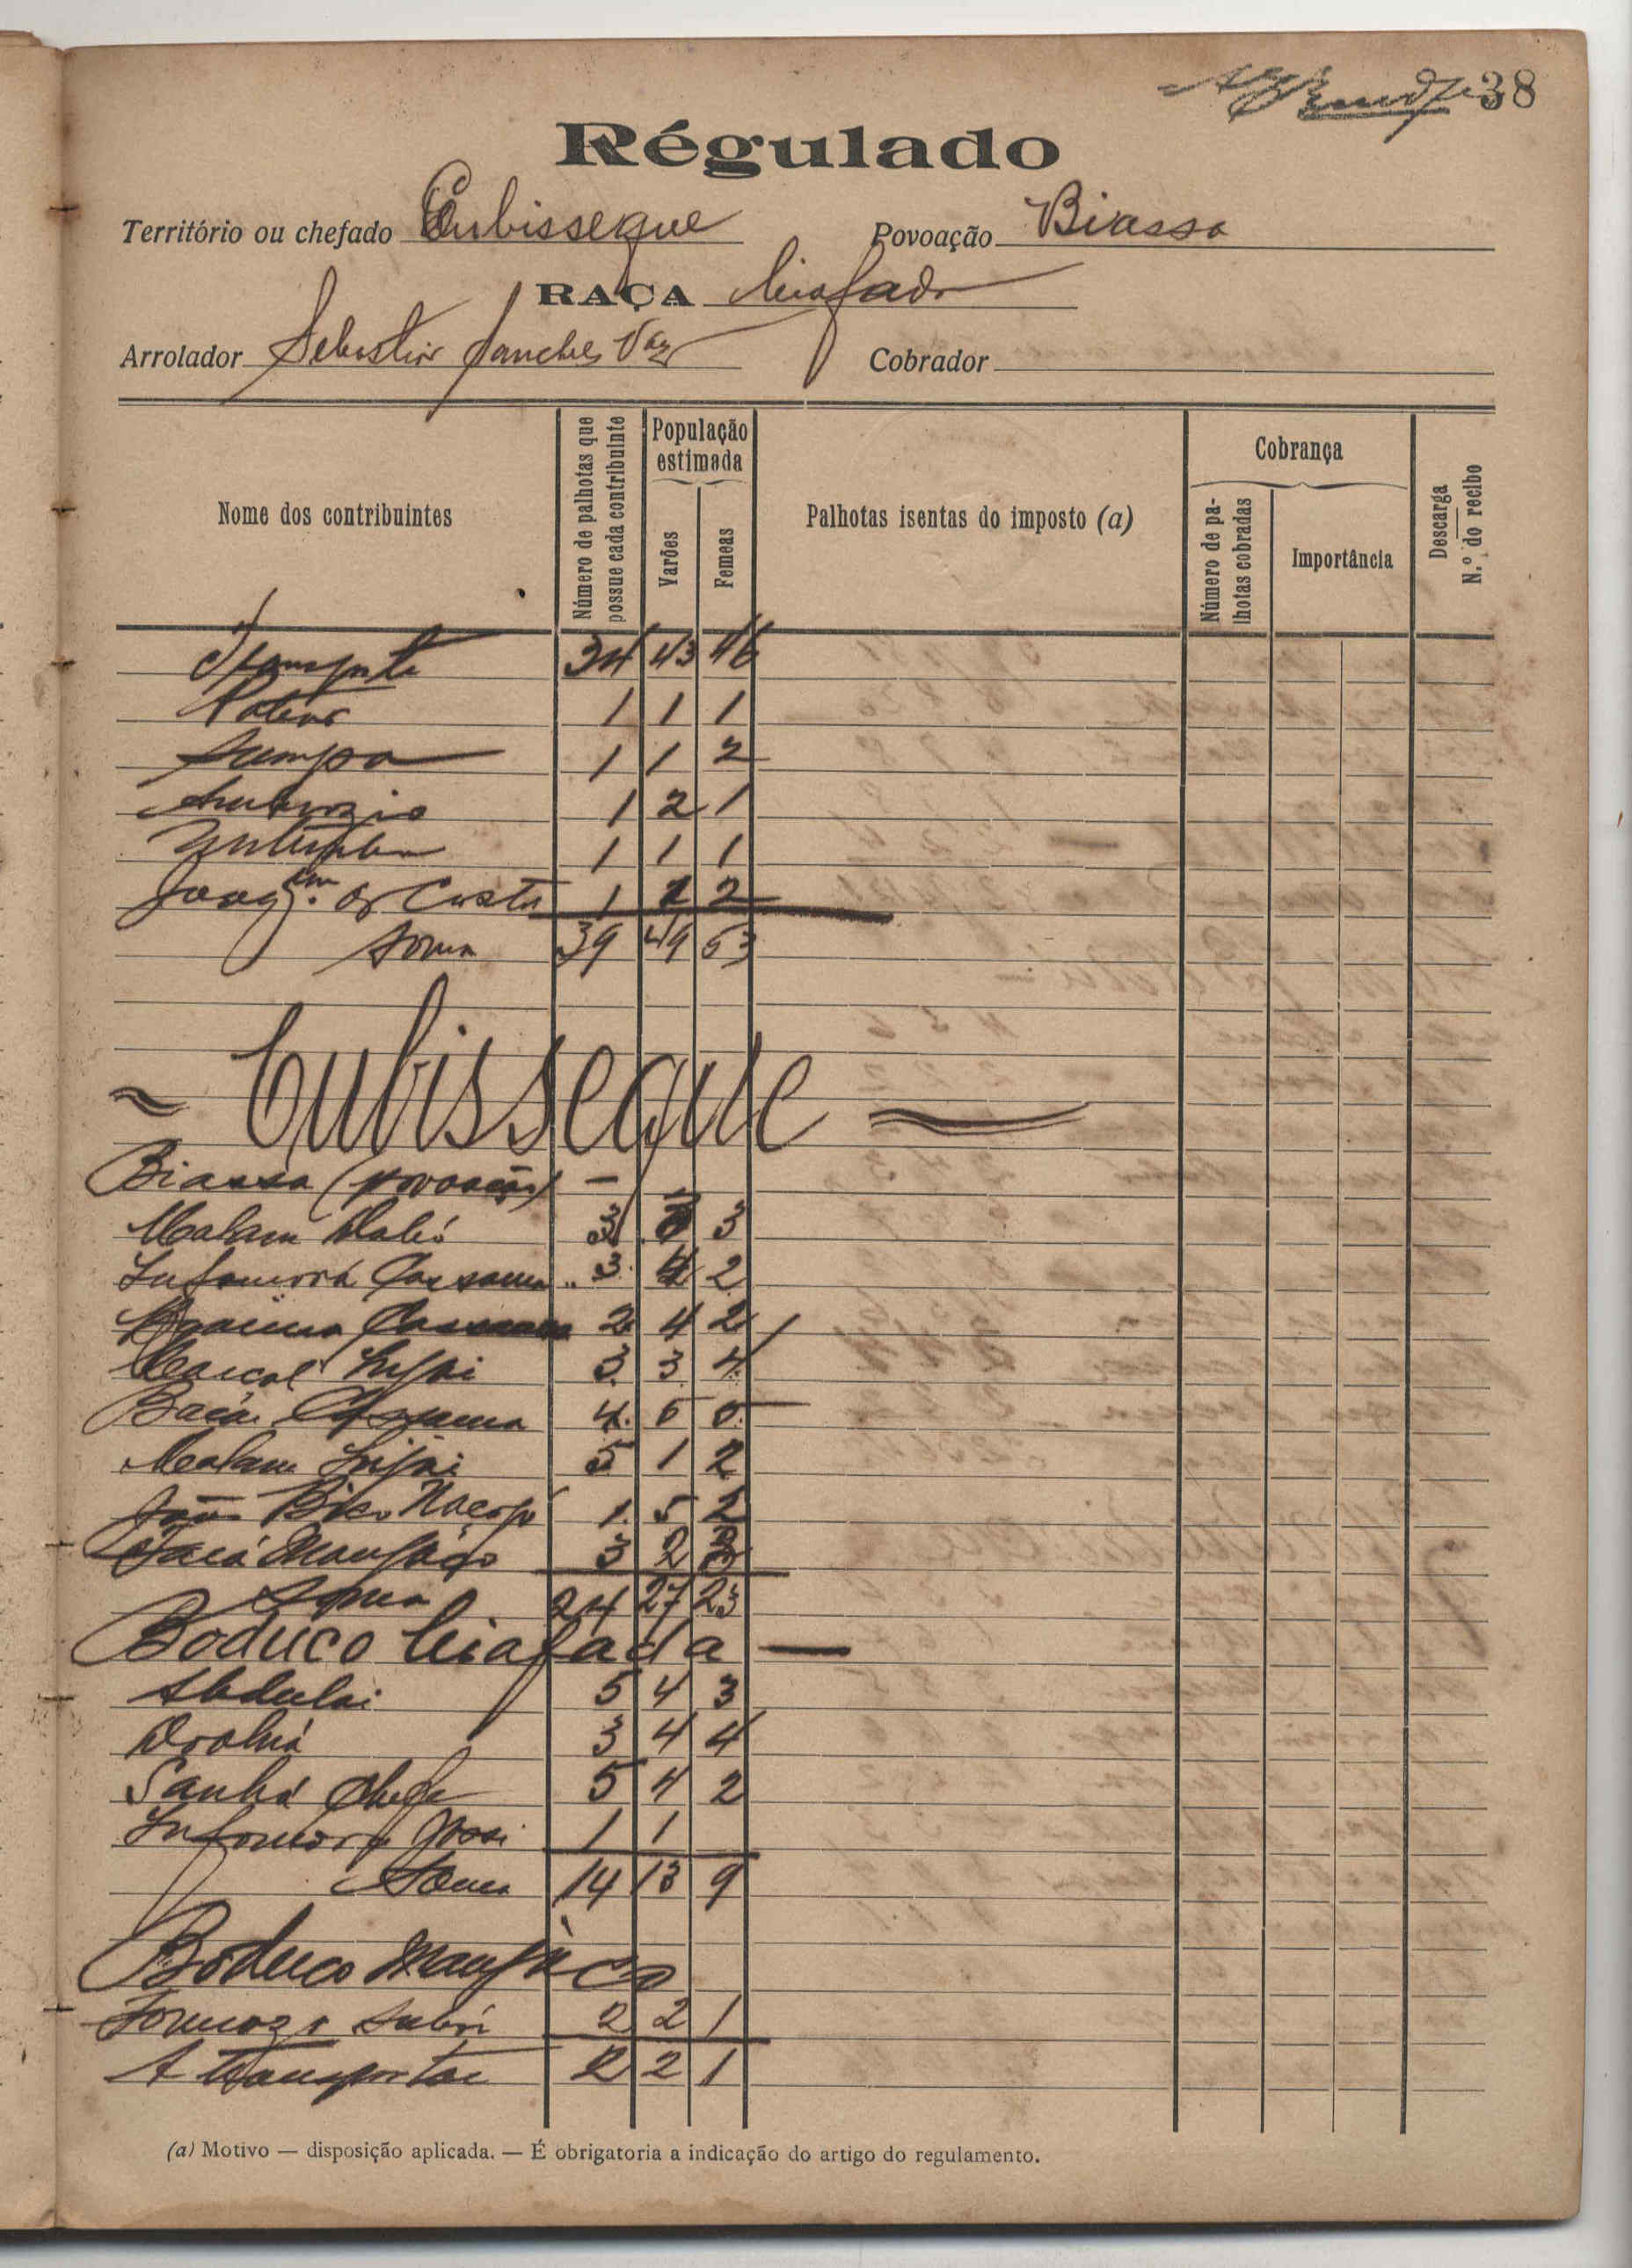 38
Régulado
Território ou chefado Cubisseque Povoação Biassa
RAÇA Biafada
Arrolador Sebastião Sanches Vaz Cobrador
Nome dos contribuintes
Número de palhotas que possue cada contribuinte
População estimada
Varões
Femeas
Palhotas isentas do imposto (a)
Cobrança
Número de palhotas cobradas
Importância
Descarga
N.º do recibo
Transporte 34 43 46
1 1 1
Sampa 1 1 2
Ambrozio 1 2 1
1 1 1
Joaq.m da Costa 1 1 2
Soma 39 49 53
Cubisseque
Biassa (povoação) —
Malam 3 3 3
Infamará Cassama 3 4 2
Cassama 2 4 2
3 3 4
Bacar Cassama 4 5 5
Malam Injai 5 1 2
João Bico 1 5 2
Manjaco 3 2 3
Soma 24 27 23
Boduco Biafada —
Abdulai 5 4 3
3 4 4
Sanhá Chefe 5 4 2
Infamará 1 1
Soma 14 13 9
Boduco Manjaco
Formozo 2 2 1
A transportar 2 2 1
(a) Motivo — disposição aplicada. — É obrigatoria a indicação do artigo do regulamento.